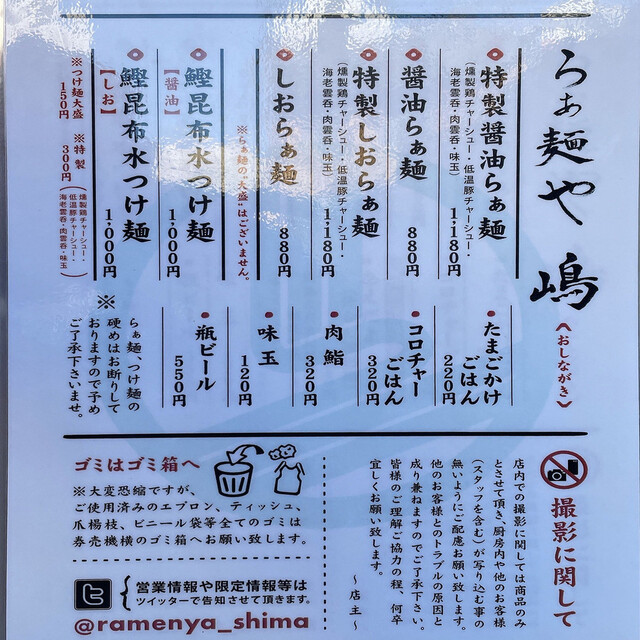 らぁ麺や 嶋
《おしながき》
特製醤油らぁ麺
1,180円
(燻製鶏チャーシュー・低温豚チャーシュー・
海老雲呑・肉雲呑・味玉)
醤油らぁ麺
880円
特製しおらぁ麺
1,180円
(燻製鶏チャーシュー・低温豚チャーシュー・
海老雲呑・肉雲呑・味玉)
しおらぁ麺
880円
※らぁ麺の"大盛"はございません。
鰹昆布水つけ麺
【醤油】
1,000円
鰹昆布水つけ麺
【しお】
1,000円
※つけ麺大盛
150円
※特製
300円
(燻製鶏チャーシュー・低温豚チャーシュー・
海老雲呑・肉雲呑・味玉)
たまごかけ
ごはん
220円
コロチャー
ごはん
320円
肉鮨
320円
味玉
120円
瓶ビール
550円
※
らぁ麺、つけ麺の
硬めはお断りして
おりますので予め
ご了承下さいませ。
撮影に関して
店内での撮影に関しては商品のみ
とさせて頂き、厨房内や他のお客様
(スタッフを含む)が写り込む事の
無いようにご配慮お願い致します。
他のお客様とのトラブルの原因と
成り兼ねますのでご了承下さい。
皆様のご理解ご協力の程、何卒
宜しくお願い致します。
〜店主〜
ゴミはゴミ箱へ
※大変恐縮ですが、
ご使用済みのエプロン、ティッシュ、
爪楊枝、ビニール袋等全てのゴミは
券売機横のゴミ箱へお願い致します。
営業情報や限定情報等は
ツイッターで告知させて頂きます。
@ramenya_shima